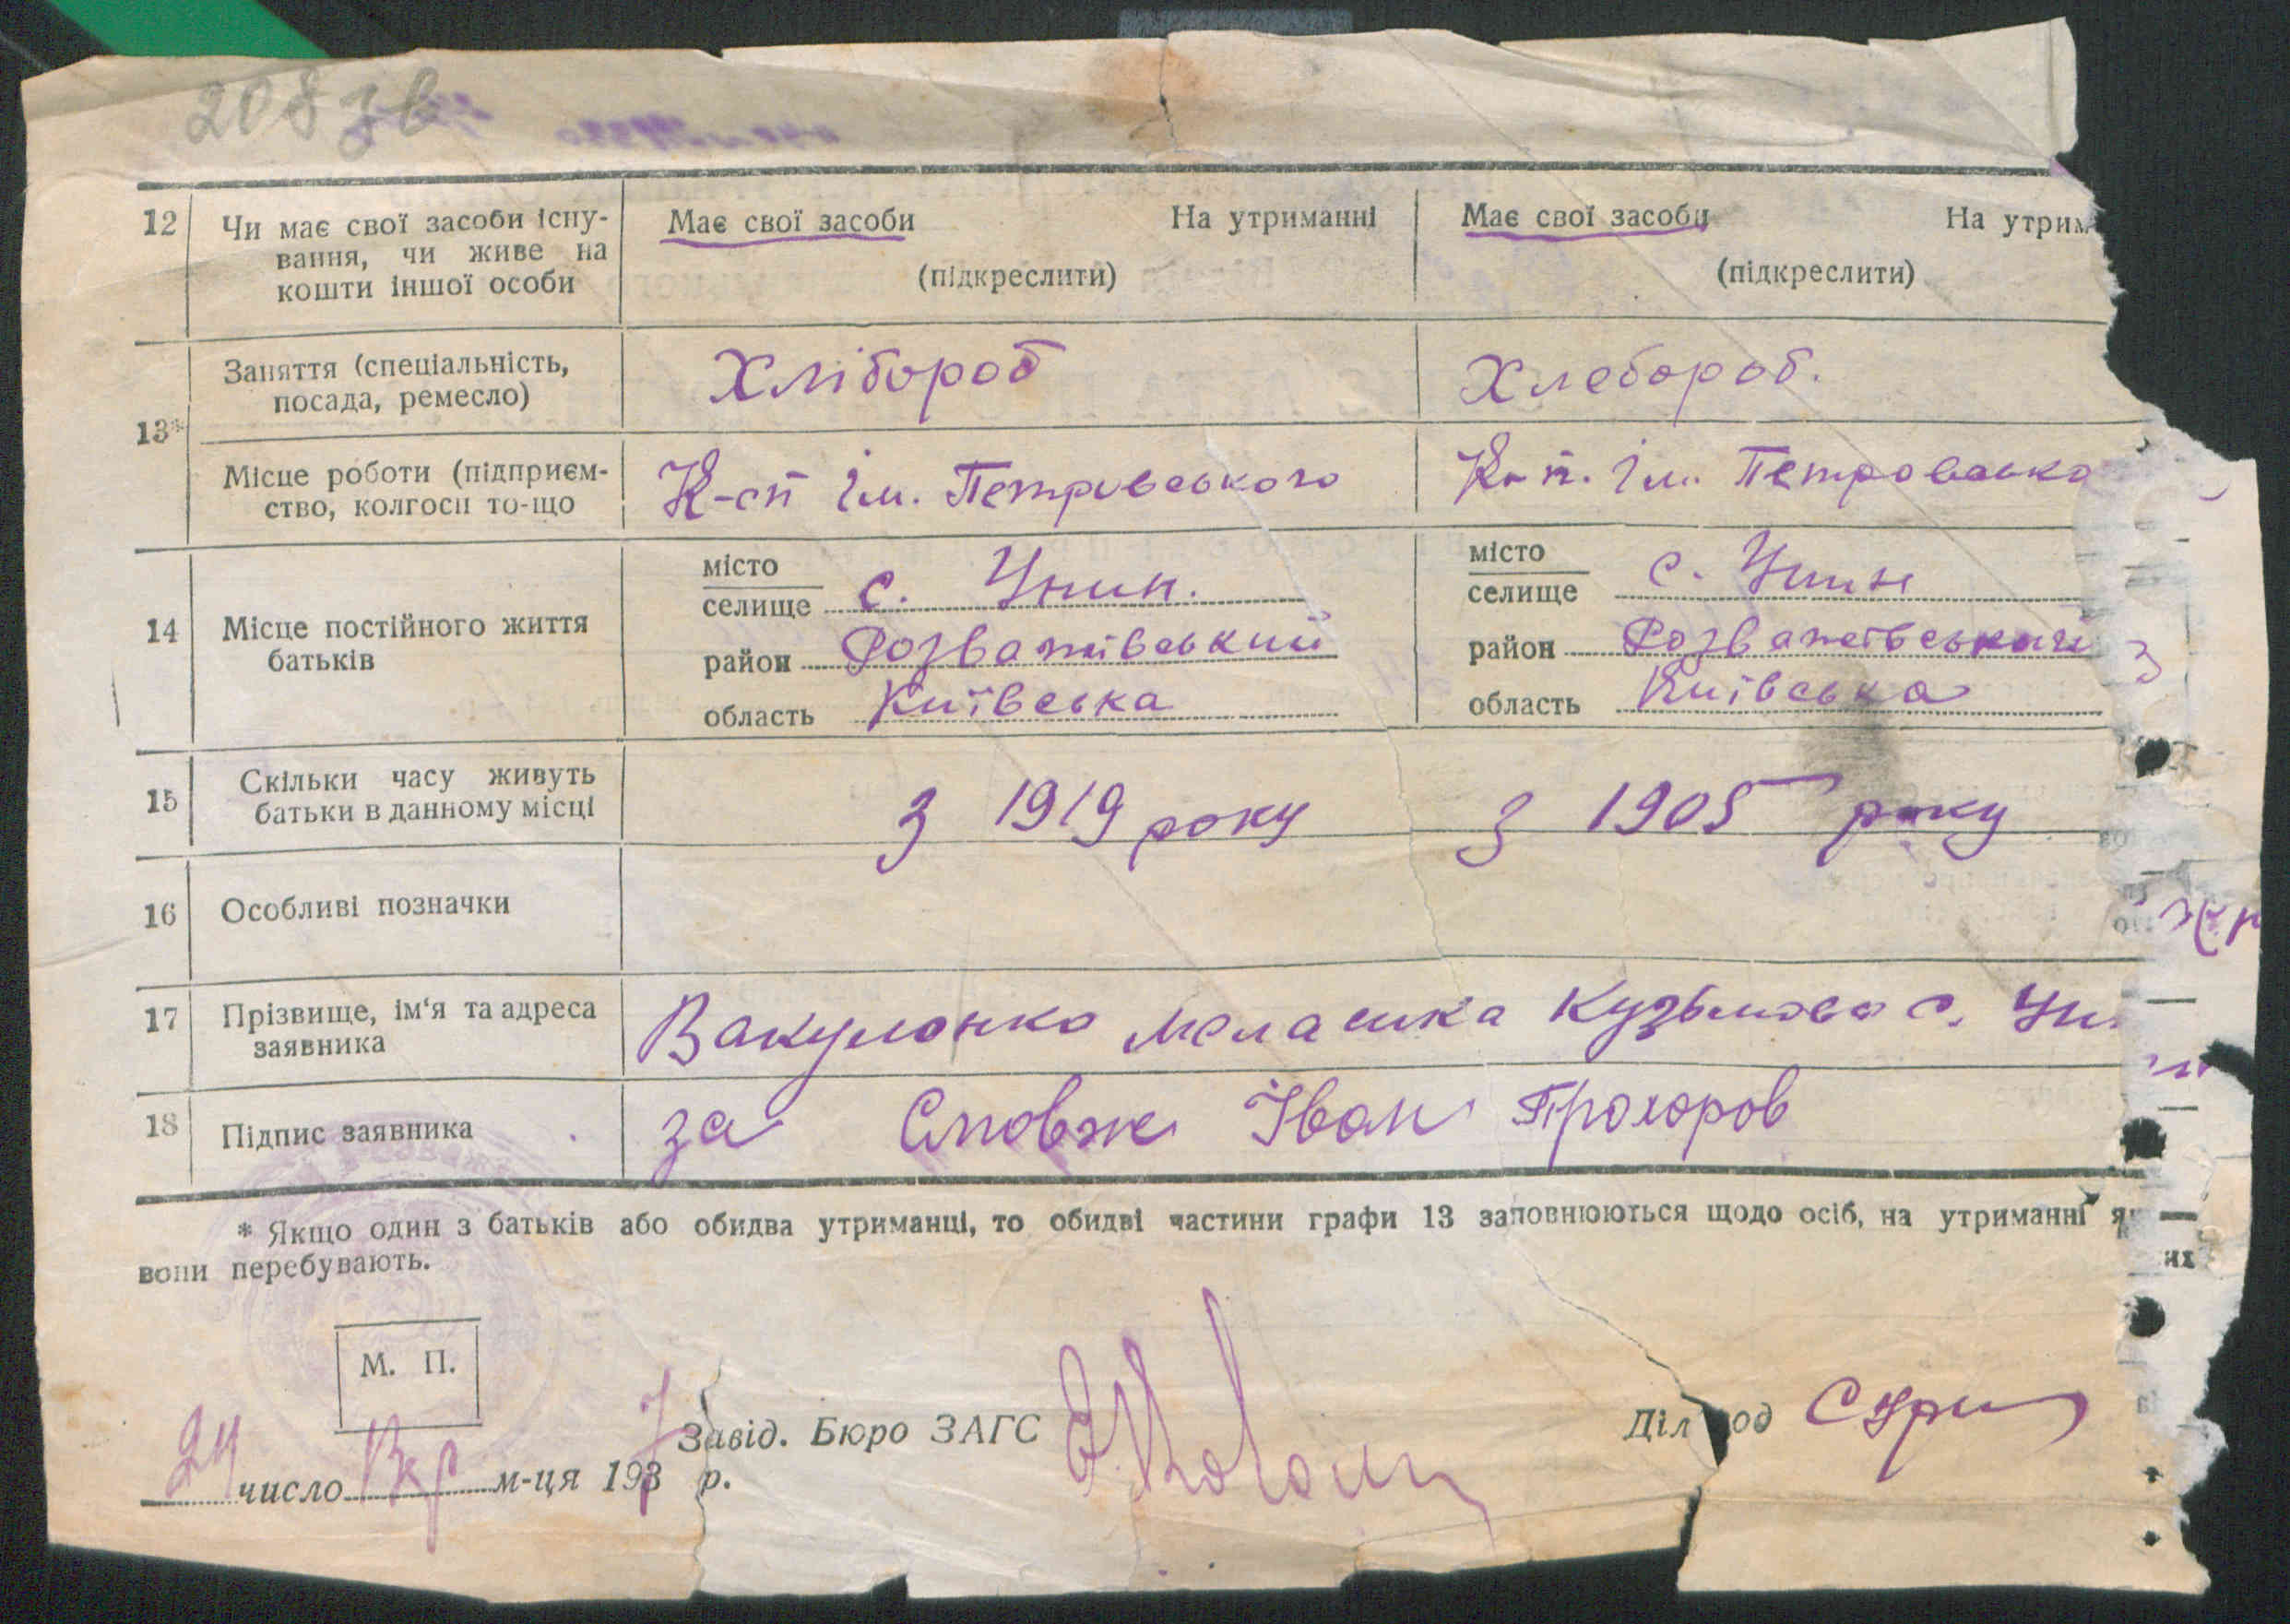 208 зв
12 Чи має свої засоби існу- Має свої засоби На утриманні Має свої засоби На утрим
вання, чи живе на
кошти іншої особи (підкреслити) (підкреслити)
Заняття (спеціальність, Хлібороб Хлебороб.
посада, ремесло)
13*
Місце роботи (підприєм- К-сп ім. Петровського К-п. ім. Петровсько
ство, колгосп то-що
місто місто
селище с. Унин. селище с. Унин
14 Місце постійного життя
батьків
район Розважівський район Розважівський
область Київська область Київська
15 Скільки часу живуть
батьки в данному місці з 1919 року з 1905 року
16 Особливі позначки
17 Прізвище, ім'я та адреса Вакуленко Мелашка Кузьмова с. Ун
заявника
18 Підпис заявника за Іван Прохоров
* Якщо один з батьків або обидва утриманці, то обидві частини графи 13 заповнюються щодо осіб, на утриманні я
вони перебувають. их
М. П.
Завід. Бюро ЗАГС Діл од
24 число м-ця 1937 р.